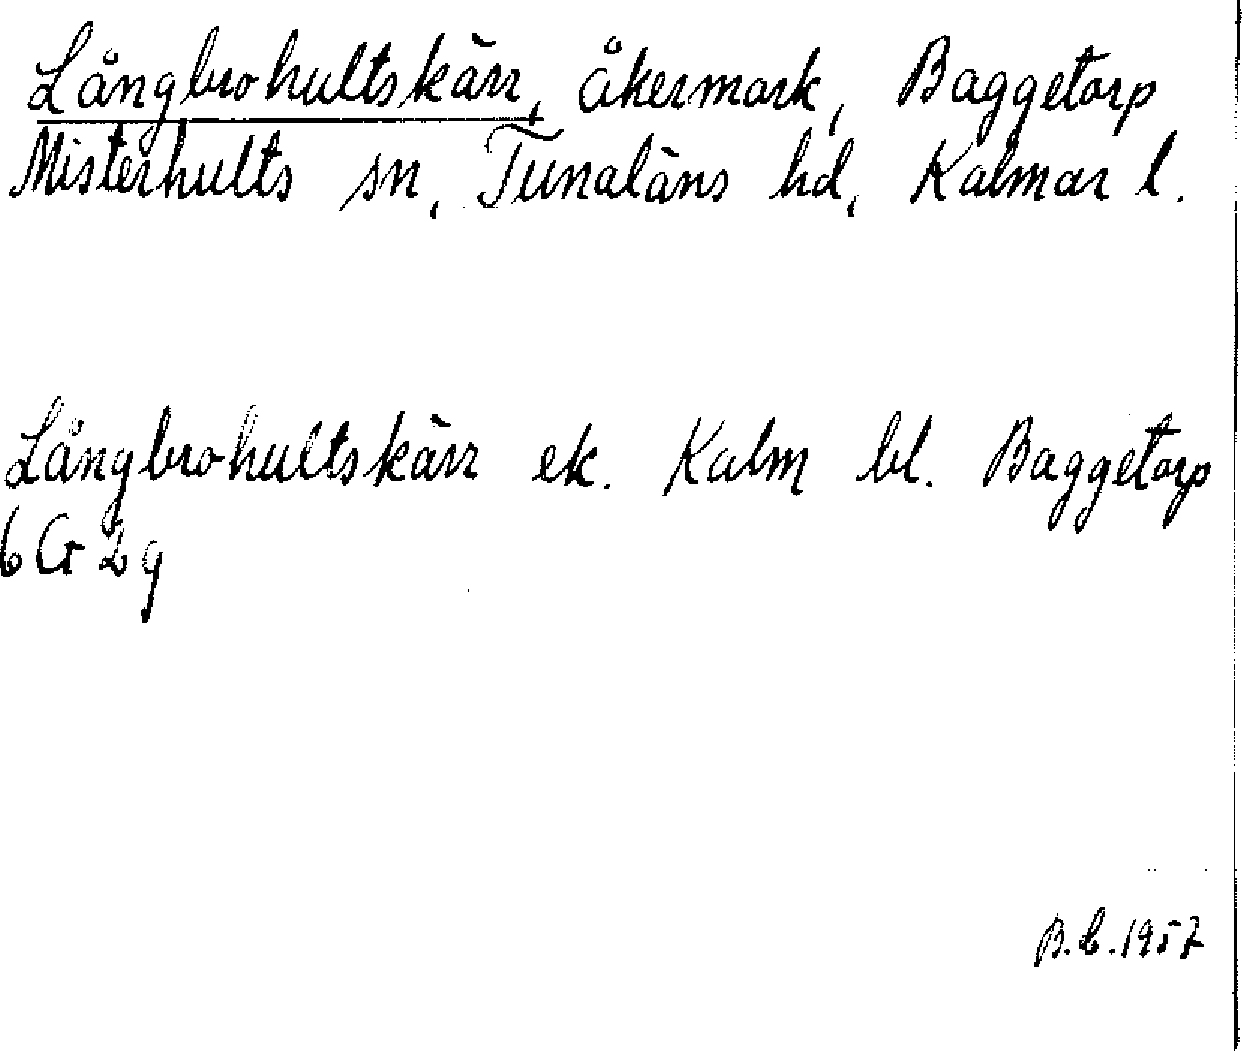 Långbrohultskärr, åkermark, Baggetorp
Misterhults sn, Tunaläns hd, Kalmar l.
Långbrohultskärr ek. Kalm bl. Baggetorp
6 G 2 g
B.C. 1957